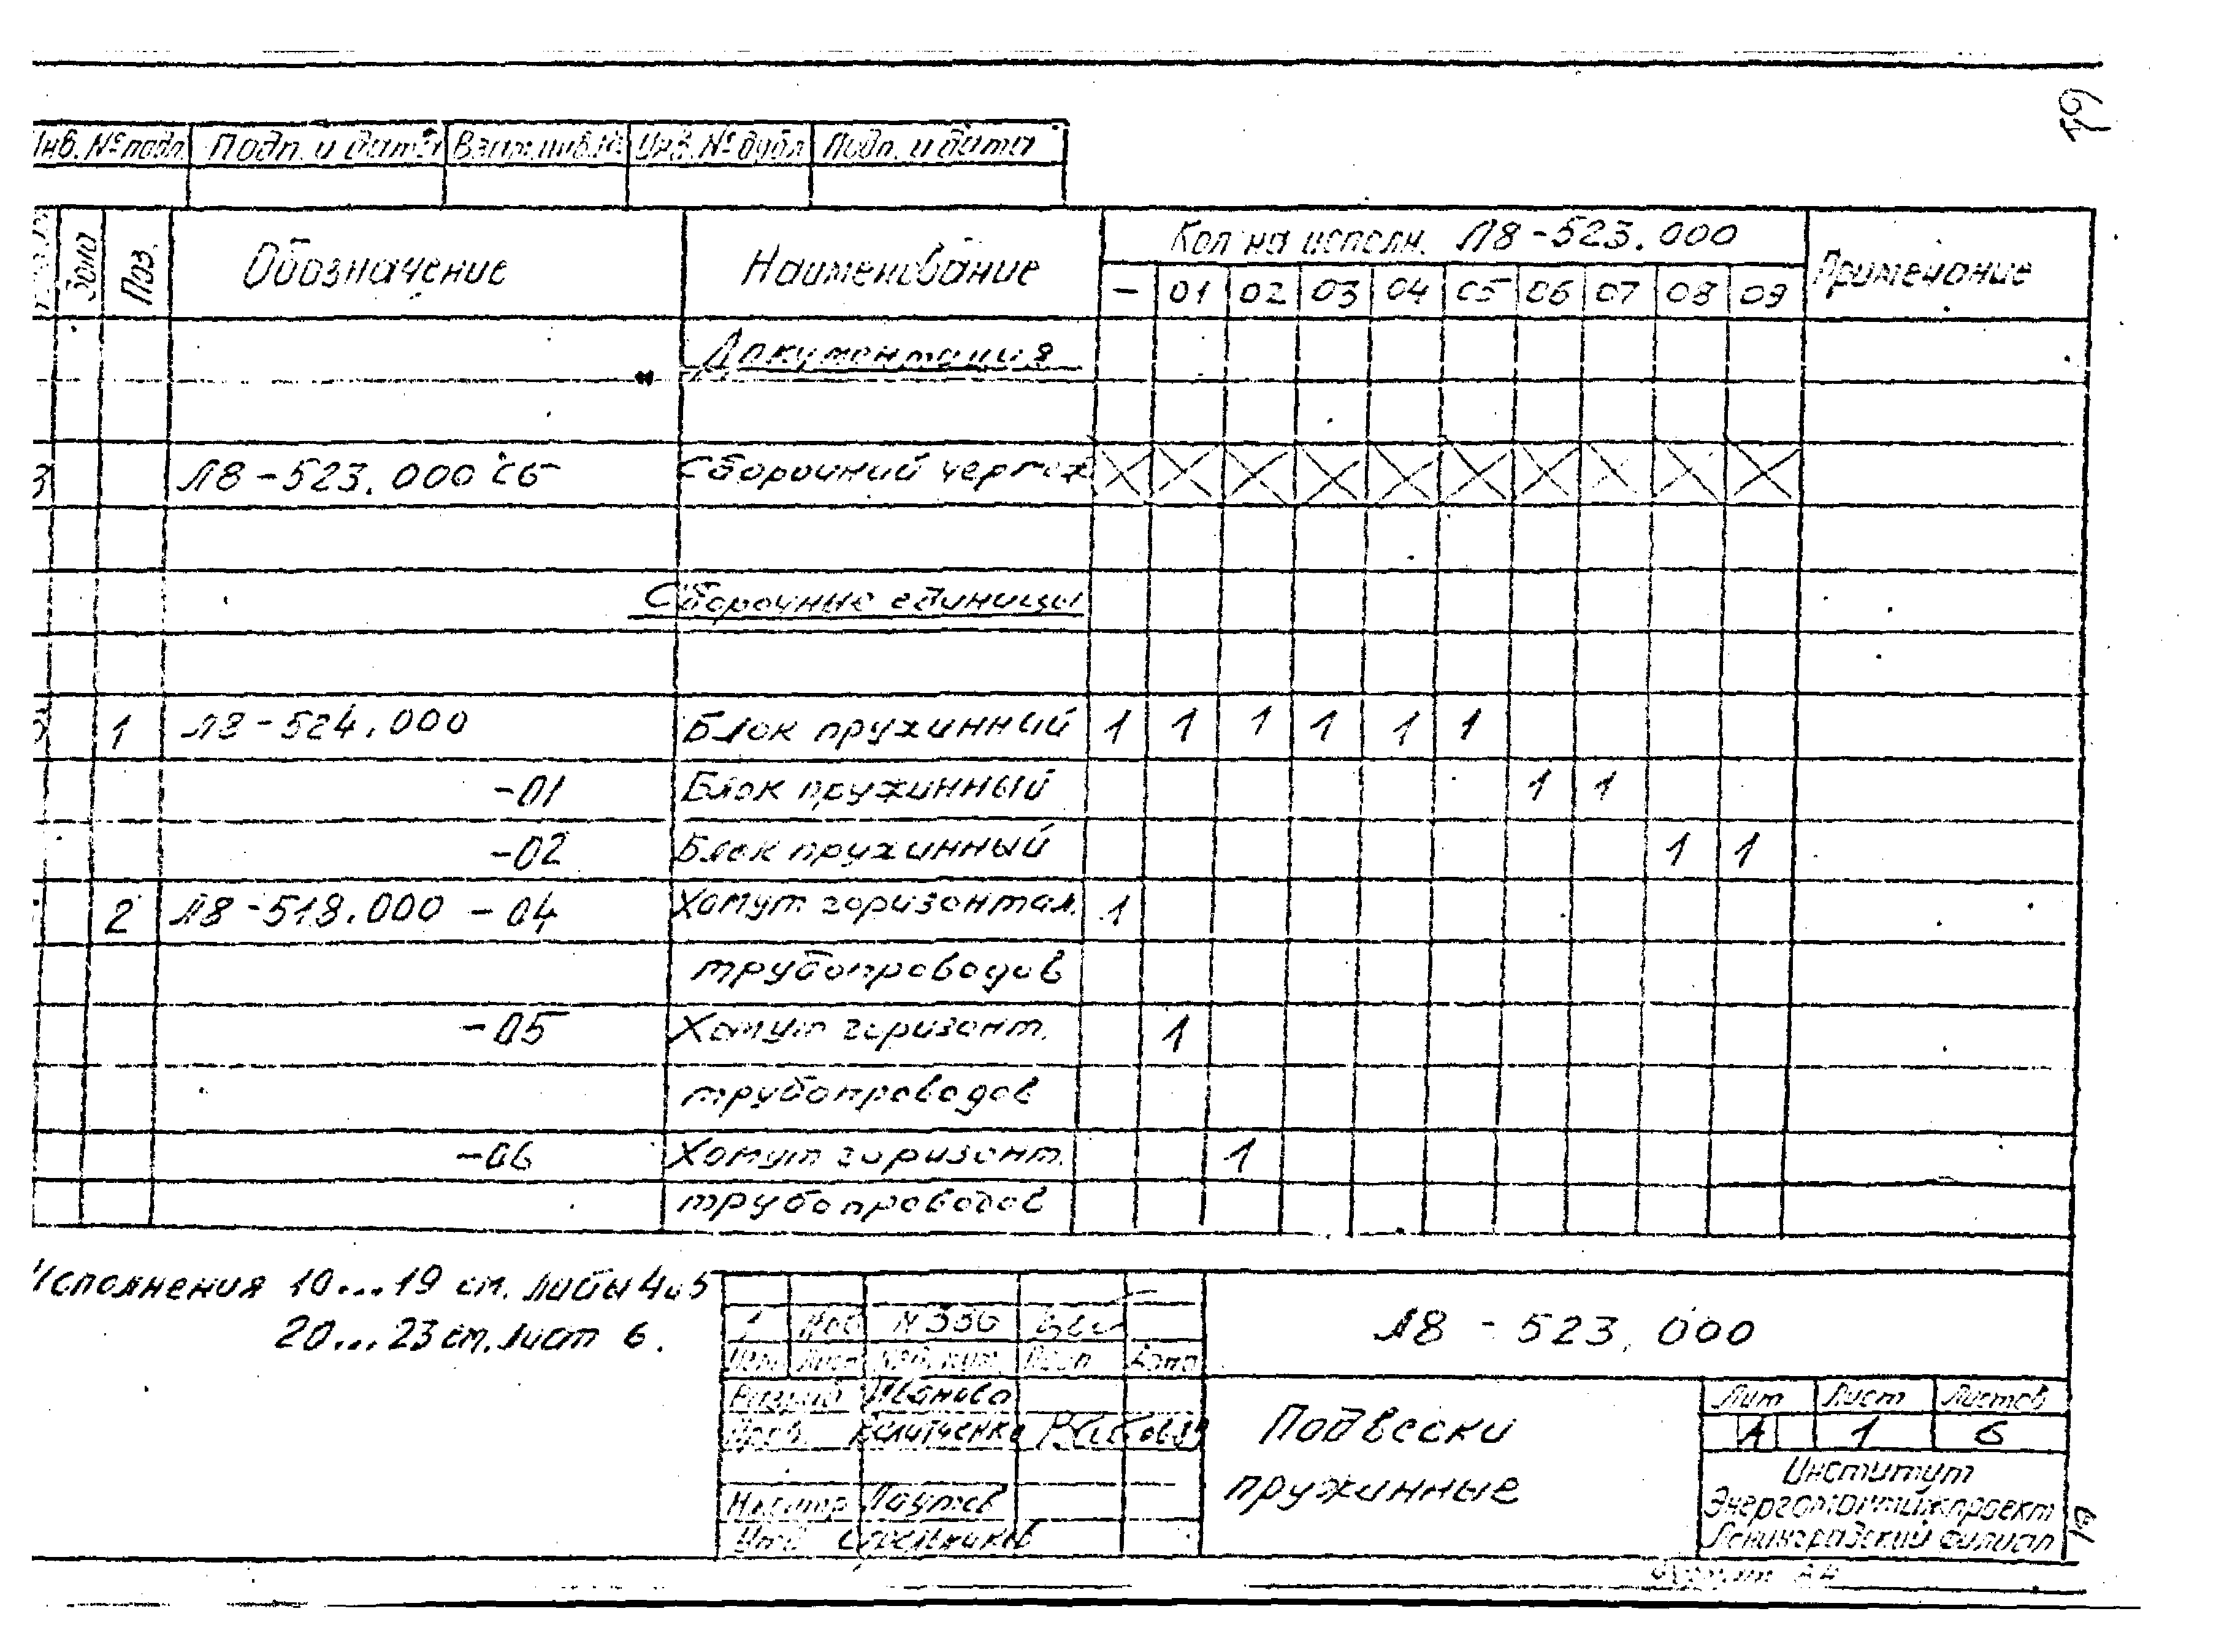 59
Инв. № подл. Подп. и дата Взам. инв. № Инв. № дубл. Подп. и дата
Зона Поз. Обозначение Наименование Кол на исполн. Л8-523.000 Примечание
- 01 02 03 04 05 06 07 08 09
Документация
Л8-523.000 СБ Сборочний чертеж
Сборочные единицы
1 Л8-524.000 Блок пружинный 1 1 1 1 1 1
-01 Блок пружинный 1 1
-02 Блок пружинный 1 1
2 Л8-518.000 -04 Хомут горизонтал. 1
трубопроводов
-05 Хомут горизонт. 1
трубопроводов
-06 Хомут горизонт. 1
трубопроводов
Исполнения 10...19 см. листы 4 и 5
20...23 см. лист 6.
Л8-523.000
1 N336
Изм. Лист № докум. Подп. Дата
Разраб. Иванова
Пров.
Н.контр.
Утв.
Подвески
пружинные
Лит Лист Листов
А 1 6
Институт
Энергомонтажпроект
Ленинградский филиал
Формат А4